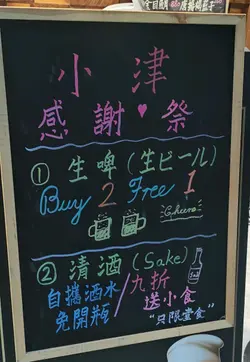 小津
感謝♥祭
① 生啤(生ビール)
Buy 2 Free 1
Cheers
② 清酒(Sake)
自攜酒水/九折
免開瓶 送小食
"只限堂食"